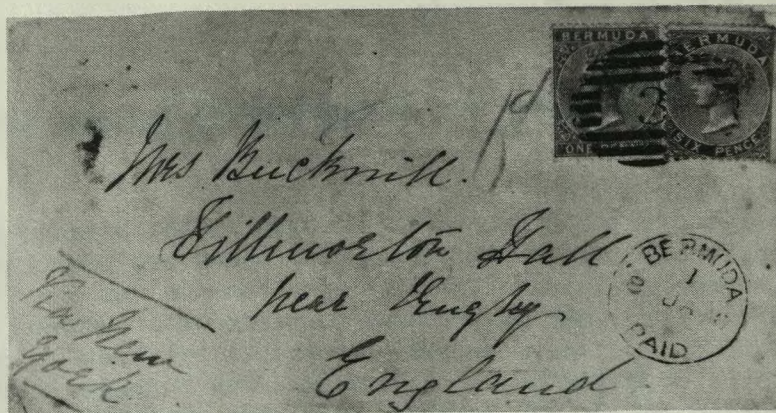 BERMUDA BERMUDA
ONE PENNY SIX PENCE
3
1d
Mrs Bucknill.
Hillmorton Hall
near Rugby
England.
Via New
York.
BERMUDA
1
PAID